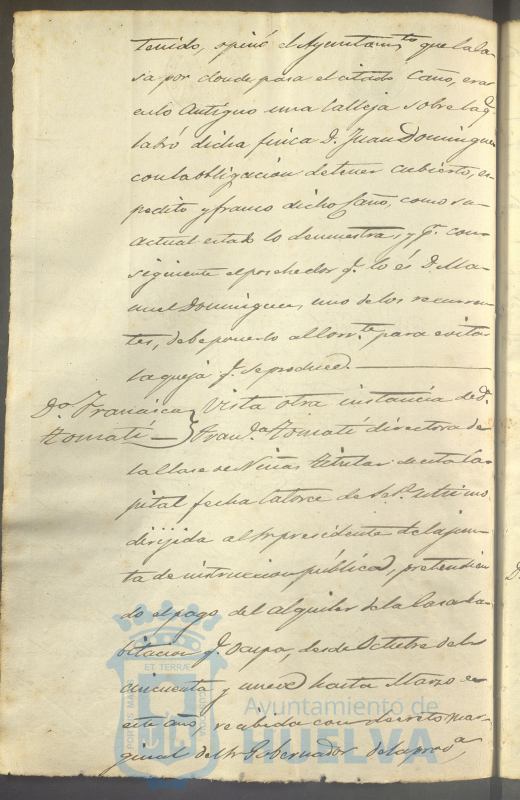 tenido, opinó el Ayuntamto que la ca-
sa por donde pasa el citado Caño, era
en lo antiguo una Calleja sobre la q.
labró dicha finca D. Juan Dominguez
con la obligacion de tener cubierto, es-
pedito y franco dicho Caño, como su
actual estado lo demuestra, y q. con-
siguiente el poseehedor q. lo és D. Ma-
nuel Dominguez, uno de los recurren-
tes, debe ponerlo al corrte para evitar
la queja q. se produce.
Da Francisca
Tomati
Vista otra instancia de Da
Franca Tomatí directora de
la clase de Niñas titular de esta Ca-
pital fecha catorce de último
dirijida al Sr presidente de la jun-
ta de instruccion pública, pretendien-
do el pago del alquiler de la Casa ha-
bitacion q. ocupa, desde Octubre del
cincuenta y nueve hasta Marzo de
este año, recibida con decreto mar-
ginal del Sr Gobernador de la prova,
PORTUS MARIS
ET TERRÆ
CUSTODIA
Ayuntamiento de
HUELVA